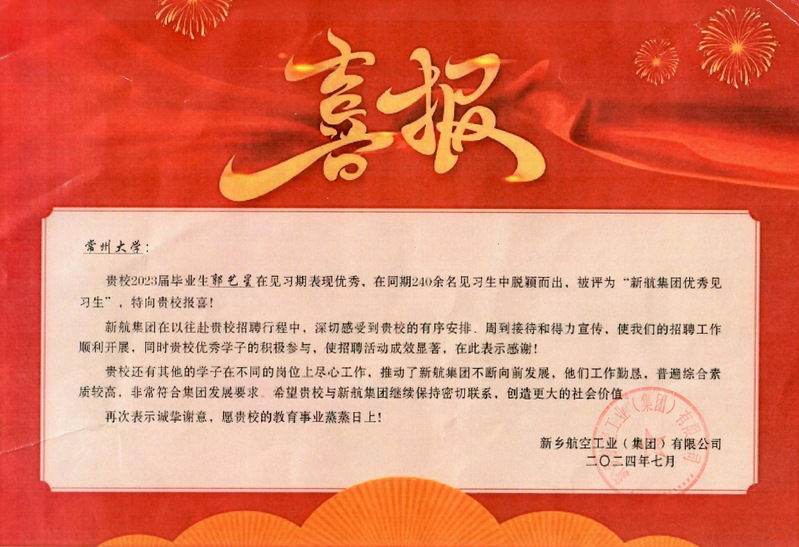 喜报
常州大学：
贵校2023届毕业生郭艺星在见习期表现优秀，在同期240余名见习生中脱颖而出，被评为“新航集团优秀见
习生”，特向贵校报喜！
新航集团在以往赴贵校招聘行程中，深切感受到贵校的有序安排、周到接待和得力宣传，使我们的招聘工作
顺利开展，同时贵校优秀学子的积极参与，使招聘活动成效显著，在此表示感谢！
贵校还有其他的学子在不同的岗位上尽心工作，推动了新航集团不断向前发展，他们工作勤恳，普遍综合素
质较高，非常符合集团发展要求。希望贵校与新航集团继续保持密切联系，创造更大的社会价值
再次表示诚挚谢意，愿贵校的教育事业蒸蒸日上！
新乡航空工业（集团）有限公司
二〇二四年七月
工业（集团）有限公司